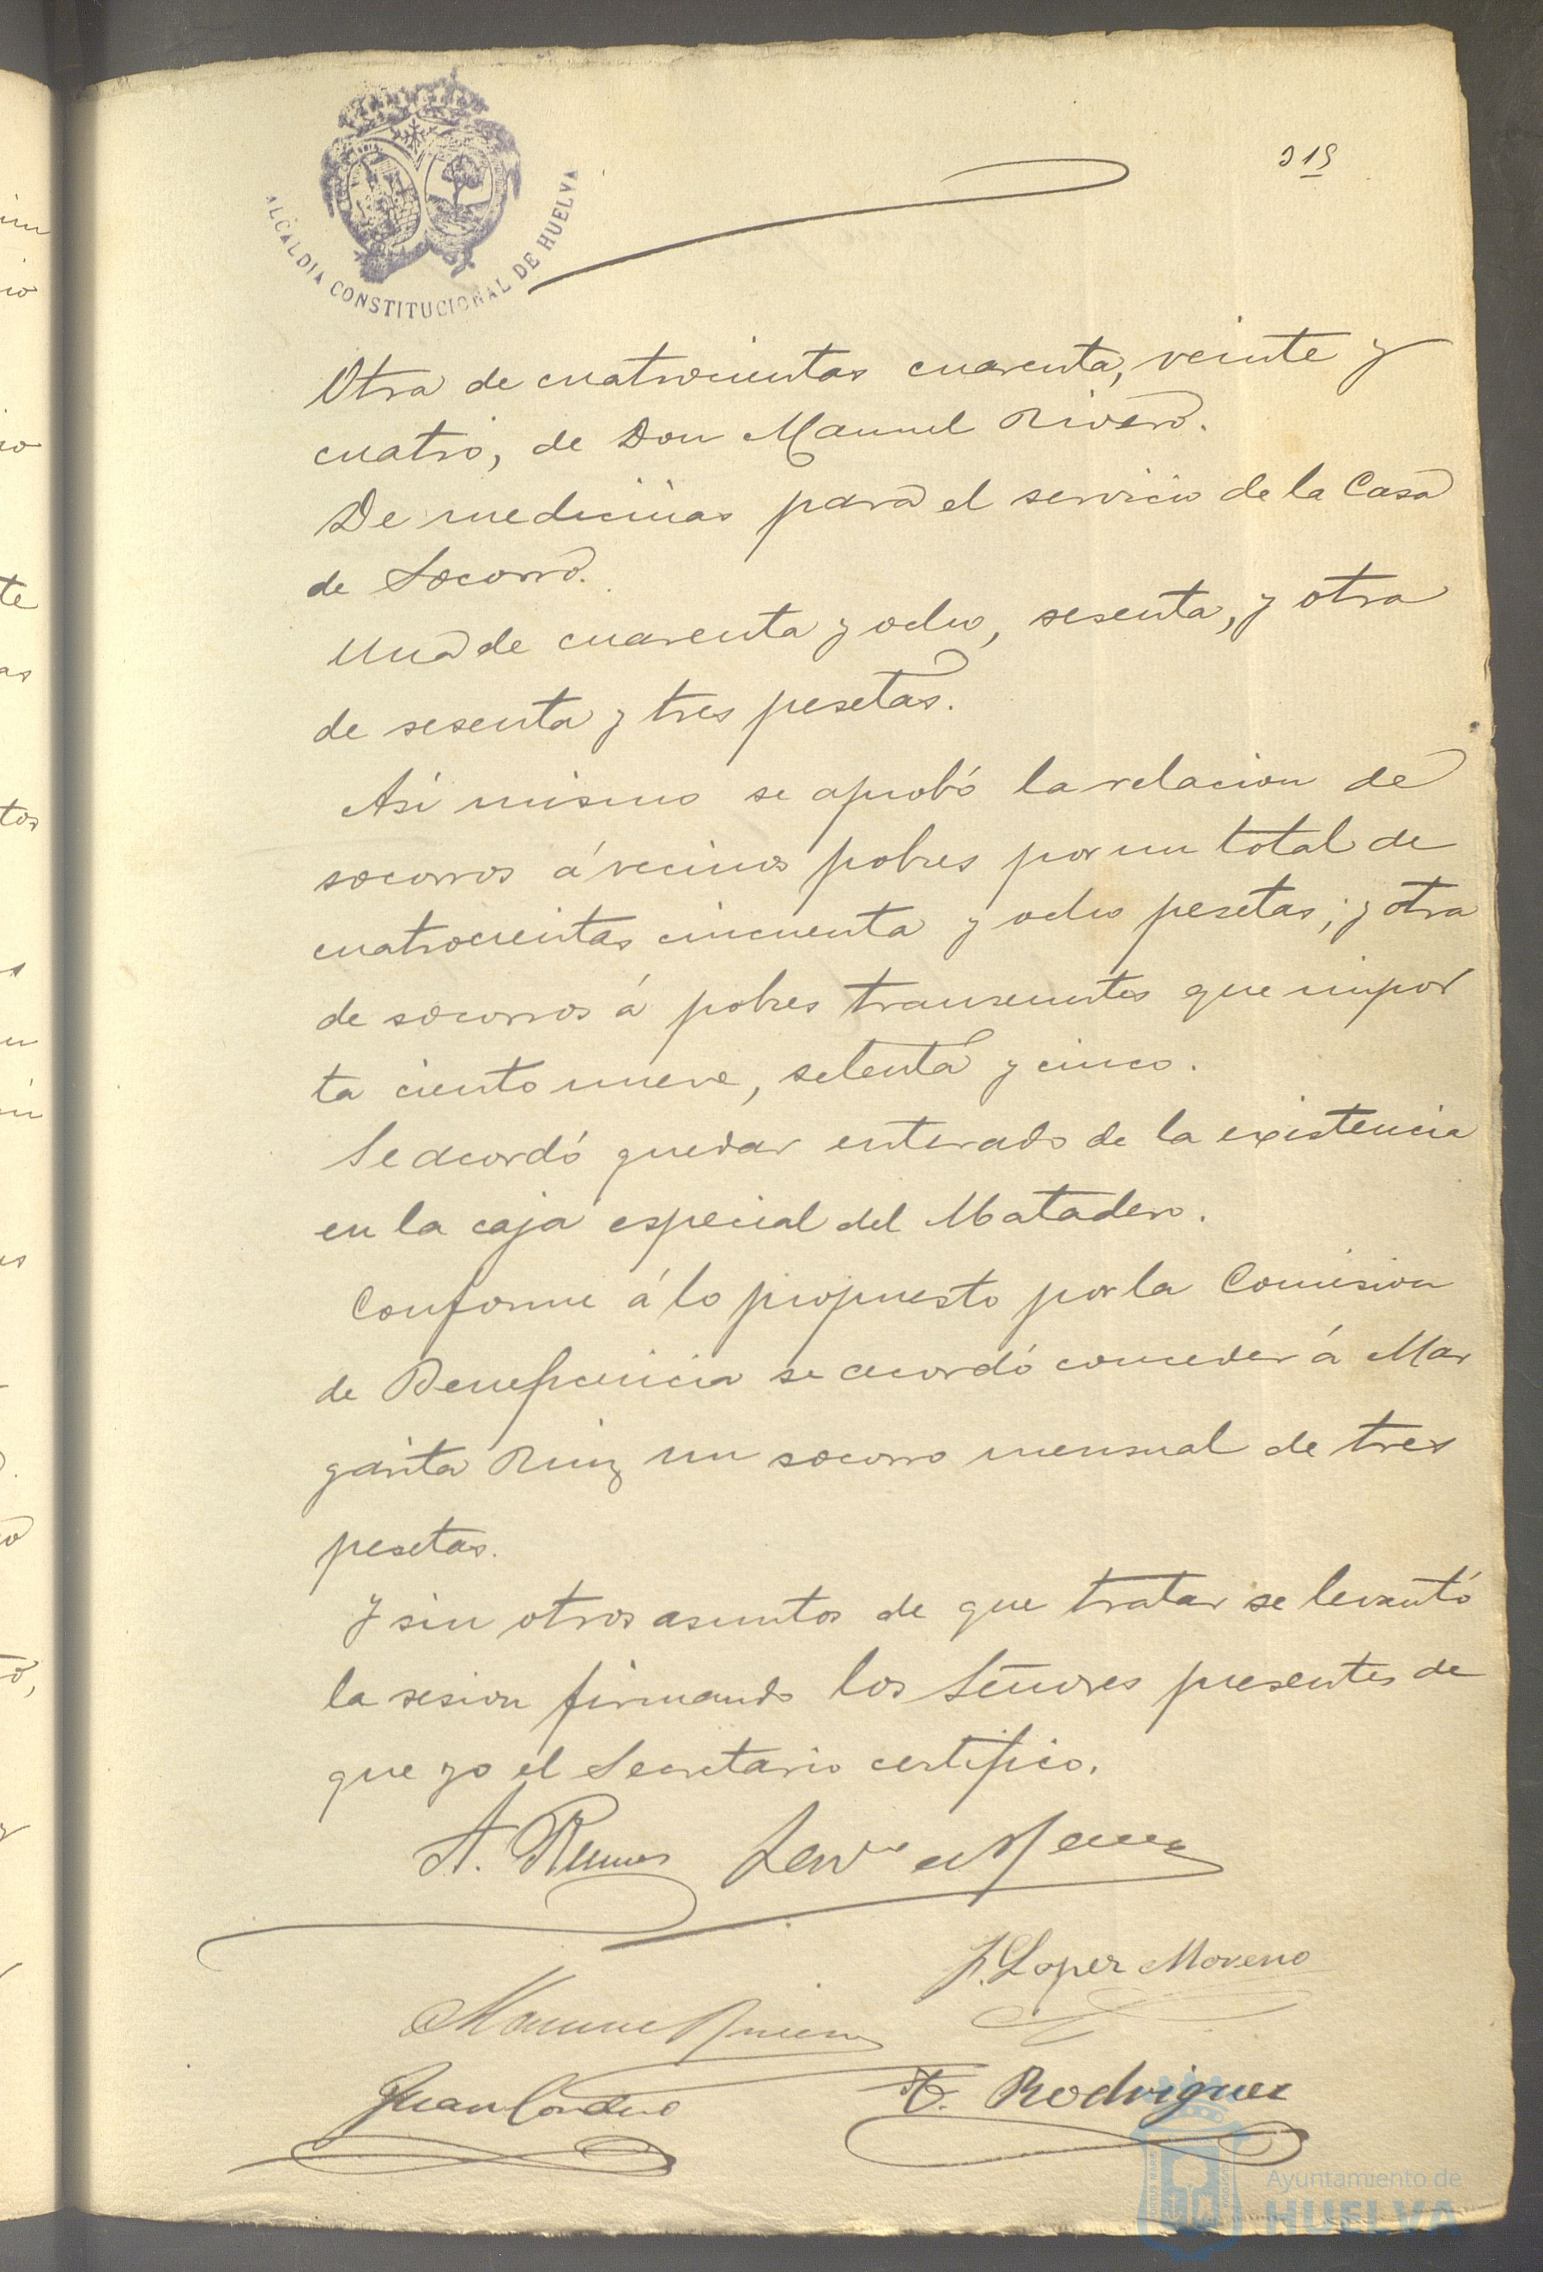 ALCALDIA CONSTITUCIONAL DE HUELVA
Otra de cuatrocientas cuarenta, veinte y
cuatro, de Don Manuel Rivero.
De medicinas para el servicio de la Casa
de Socorro.
Una de cuarenta y ocho, sesenta, y otra
de sesenta y tres pesetas.
Asi mismo se aprobó la relacion de
socorros á vecinos pobres por un total de
cuatrocientas cincuenta y ocho pesetas; y otra
de socorros á pobres transeuntes que impor
ta ciento nueve, setenta y cinco.
Se acordó quedar enterado de la existencia
en la caja especial del Matadero.
Conforme á lo propuesto por la Comision
de Beneficencia se acordó conceder á Mar
garita Ruiz un socorro mensual de tres
pesetas.
Y sin otros asuntos de que tratar se levantó
la sesion firmando los Señores presentes de
que yo el Secretario certifico.
A.
F. Lopez Moreno
Manuel
Juan Cordero
Rodriguez
Ayuntamiento de
HUELVA